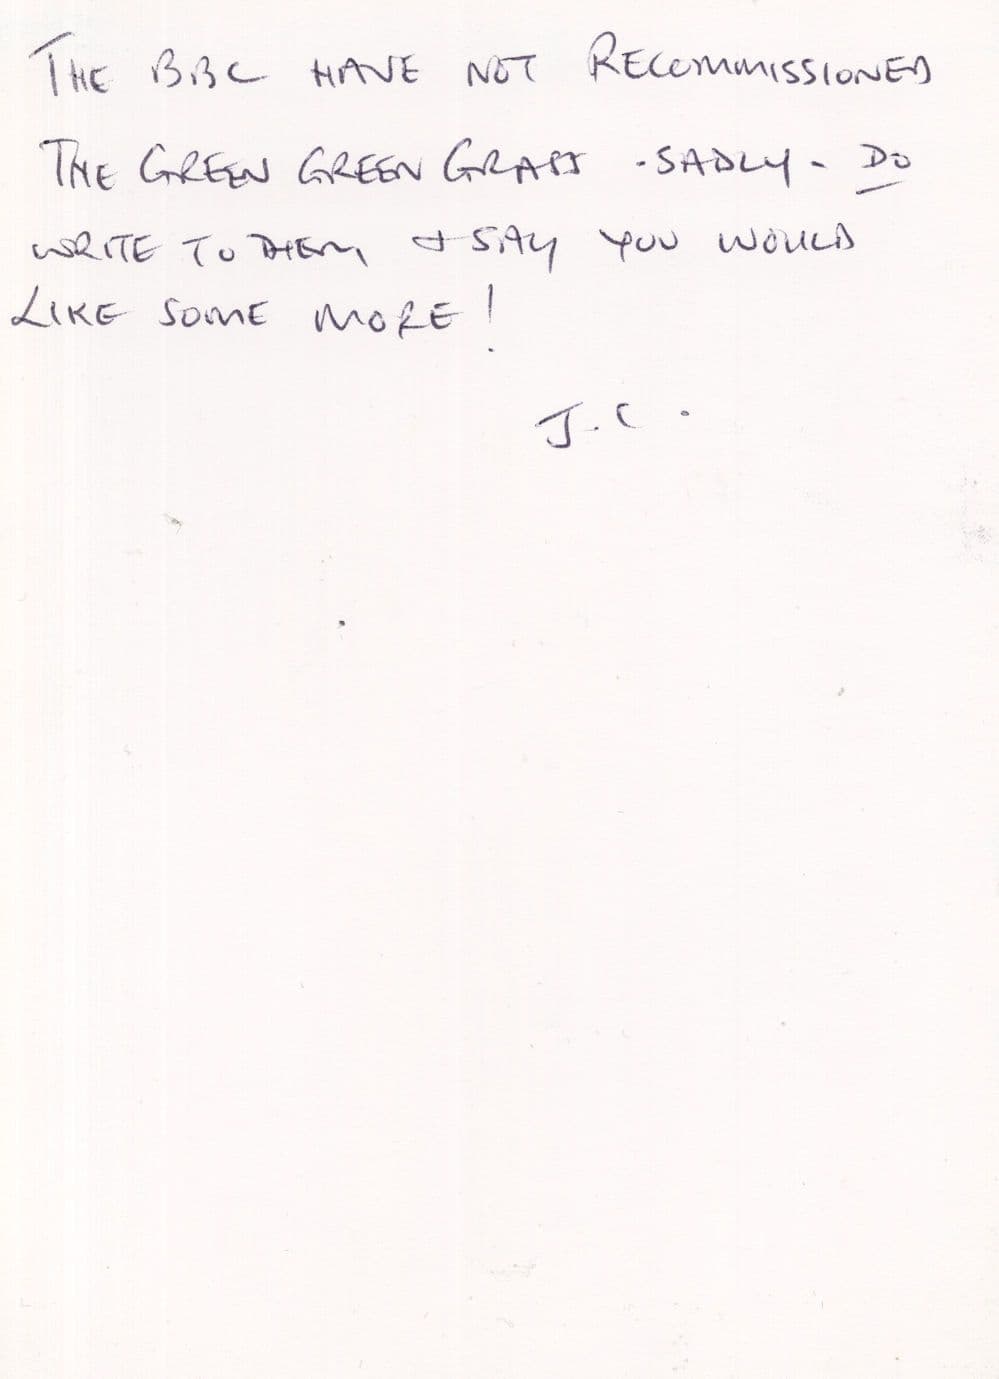 THE BBC HAVE NOT RECOMMISSIONED
THE GREEN GREEN GRASS - SADLY - DO
WRITE TO THEM & SAY YOU WOULD
LIKE SOME MORE!
J.C.